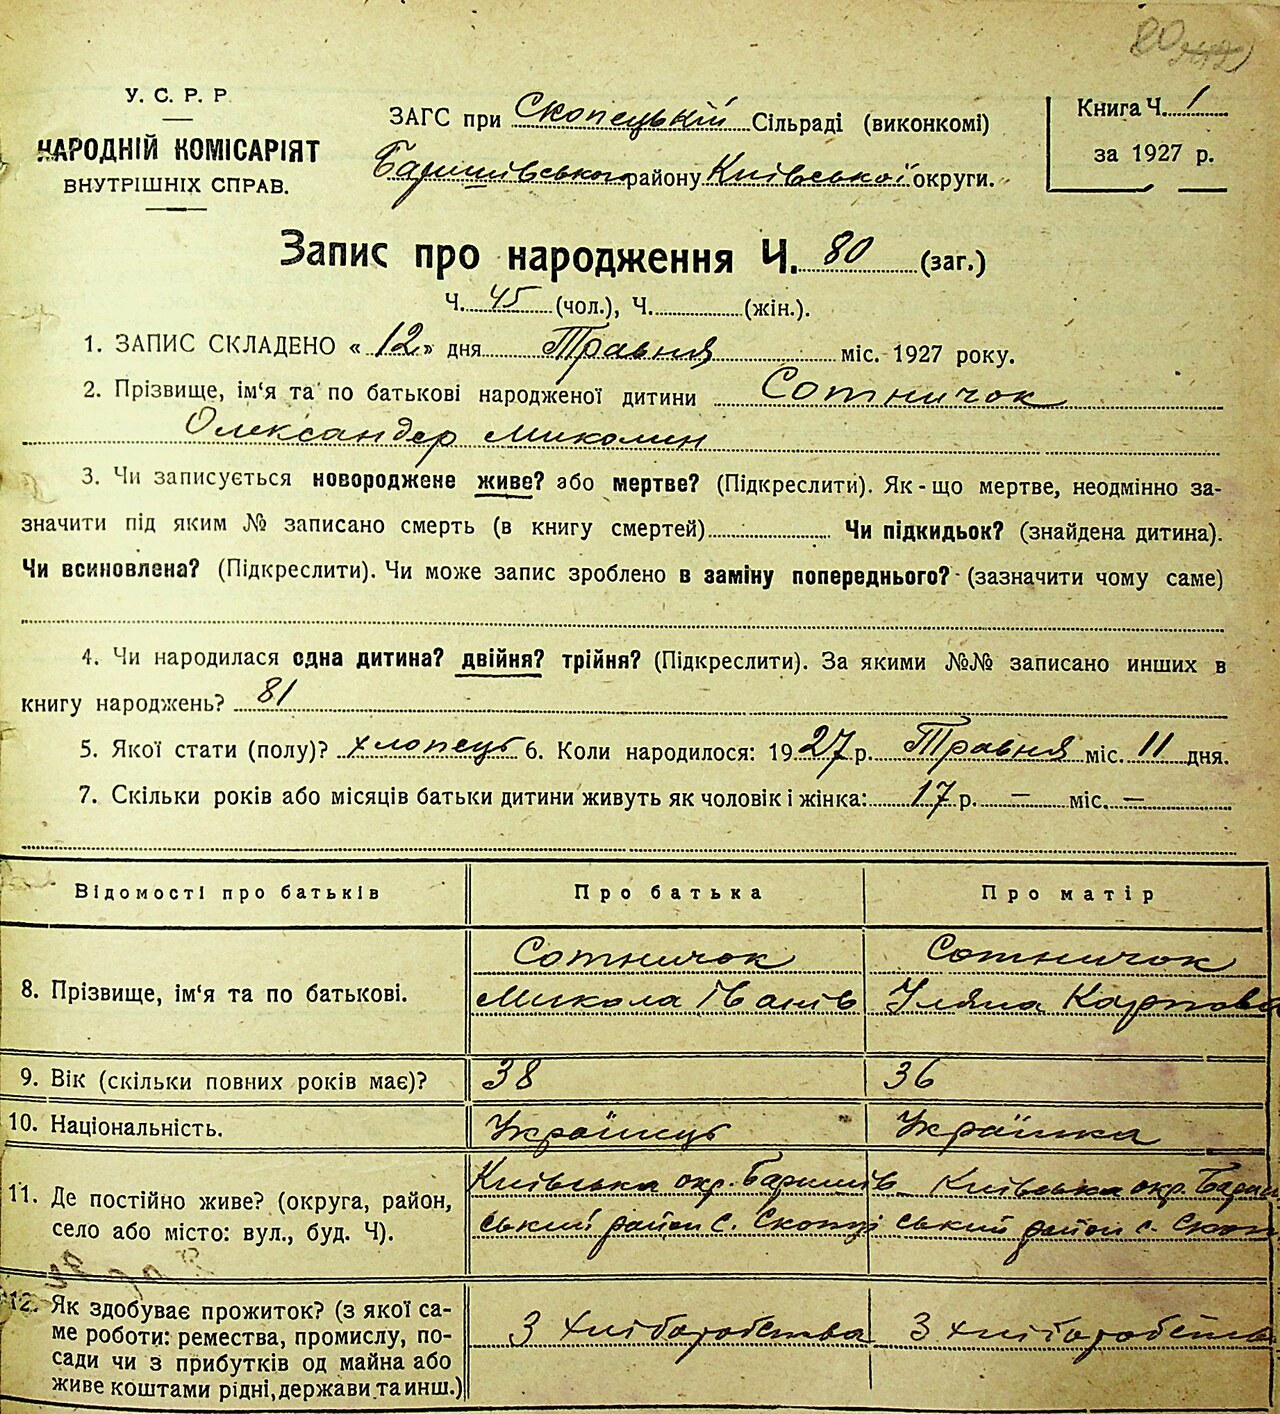 У. С. Р. Р
НАРОДНІЙ КОМІСАРІЯТ
ВНУТРІШНІХ СПРАВ.
ЗАГС при Скопецькій Сільраді (виконкомі)
Баришівського району Київської округи.
Книга Ч. 1
за 1927 р.
Запис про народження Ч. 80 (заг.)
Ч. 45 (чол.), Ч. (жін.).
1. ЗАПИС СКЛАДЕНО « 12 » дня Травня міс. 1927 року.
2. Прізвище, ім‘я та по батькові народженої дитини Сотничок
Олександер Миколин
3. Чи записується новороджене живе? або мертве? (Підкреслити). Як-що мертве, неодмінно за-
значити під яким № записано смерть (в книгу смертей) Чи підкидьок? (знайдена дитина).
Чи всиновлена? (Підкреслити). Чи може запис зроблено в заміну попереднього? (зазначити чому саме)
4. Чи народилася одна дитина? двійня? трійня? (Підкреслити). За якими №№ записано инших в
книгу народжень? 81
5. Якої стати (полу)? хлопець 6. Коли народилося: 1927 р. Травня міс. 11 дня.
7. Скільки років або місяців батьки дитини живуть як чоловік і жінка: 17 р. — міс. —
Відомості про батьків Про батька Про матір
8. Прізвище, ім‘я та по батькові. Сотничок Микола Іванів Сотничок Уляна Карпова
9. Вік (скільки повних років має)? 38 36
10. Національність. Українець Українка
11. Де постійно живе? (округа, район, Київська окр. Баришів Київська окр. Бариш
село або місто: вул., буд. Ч). ський район с. Скопці ський район с. Скоп
12. Як здобуває прожиток? (з якої са- З хліборобства З хліборобств
ме роботи: ремества, промислу, по-
сади чи з прибутків од майна або
живе коштами рідні, держави та инш.)